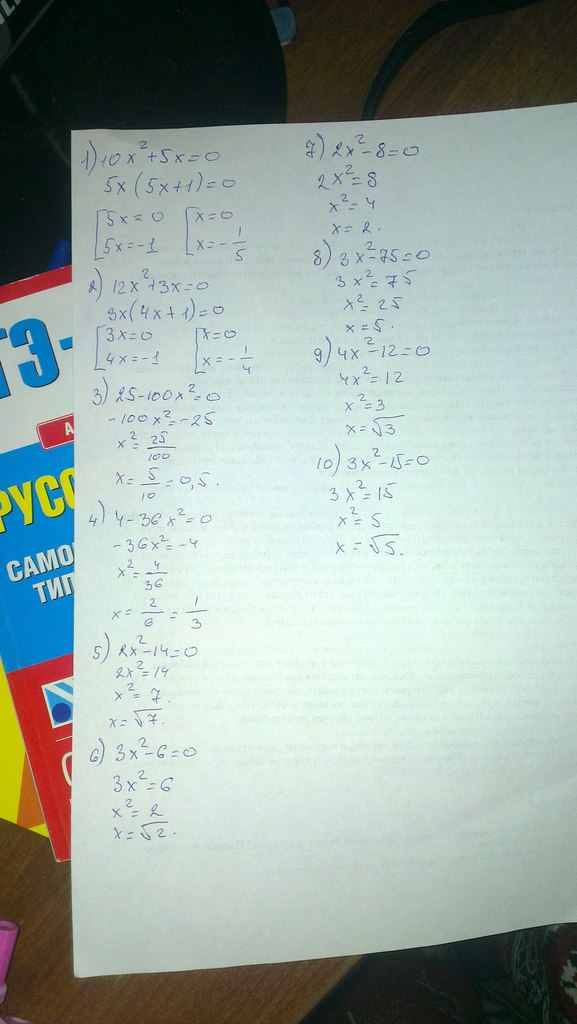 1) 10x²+5x=0
5x(5x+1)=0
[5x=0 [x=0
[5x=-1 [x=-1/5
2) 12x²+3x=0
3x(4x+1)=0
[3x=0 [x=0
[4x=-1 [x=-1/4
3) 25-100x²=0
-100x²=-25
x²=25/100
x=5/10=0,5.
4) 4-36x²=0
-36x²=-4
x²=4/36
x=2/6=1/3
5) 2x²-14=0
2x²=14
x²=7.
x=√7.
6) 3x²-6=0
3x²=6
x²=2
x=√2.
7) 2x²-8=0
2x²=8
x²=4
x=2.
8) 3x²-75=0
3x²=75
x²=25
x=5.
9) 4x²-12=0
4x²=12
x²=3
x=√3
10) 3x²-15=0
3x²=15
x²=5
x=√5.
ГЭ-
А
РУСС
САМО
ТИП